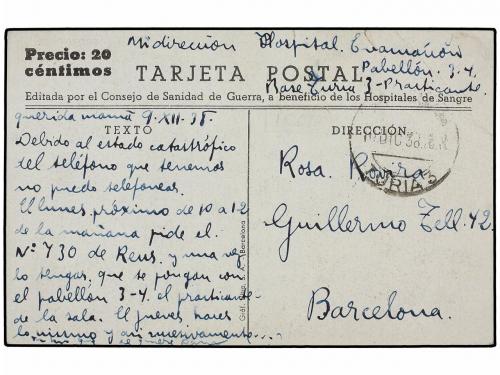 Precio: 20
céntimos
Mi dirección Hospital. Evacuación
Pabellón. 3-4.
Base Turia 3 - Practicante.
TARJETA POSTAL
Editada por el Consejo de Sanidad de Guerra, a beneficio de los Hospitales de Sangre
querida mamá 9-XII-38.
TEXTO
Debido al estado catastrófico
del teléfono que tenemos
no puedo telefonear.
El lunes próximo de 10 a 12
de la mañana pide el
Nº 730 de Reus, y una vez
lo tengas, que se pongan con
el pabellón 3-4. el practicante
de la sala. El jueves haces
lo mismo y así sucesivamente...
Gráf. S. A. (Barcelona)
DIRECCIÓN
DIC 38
Rosa Rovira
Guillermo Tell. 42.
Barcelona.